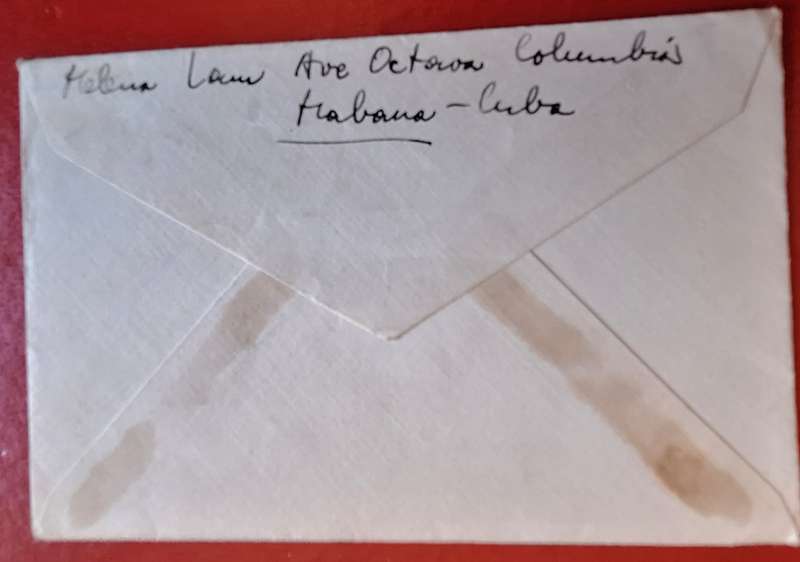 Helena Lam Ave Octava Columbia
Habana - Cuba